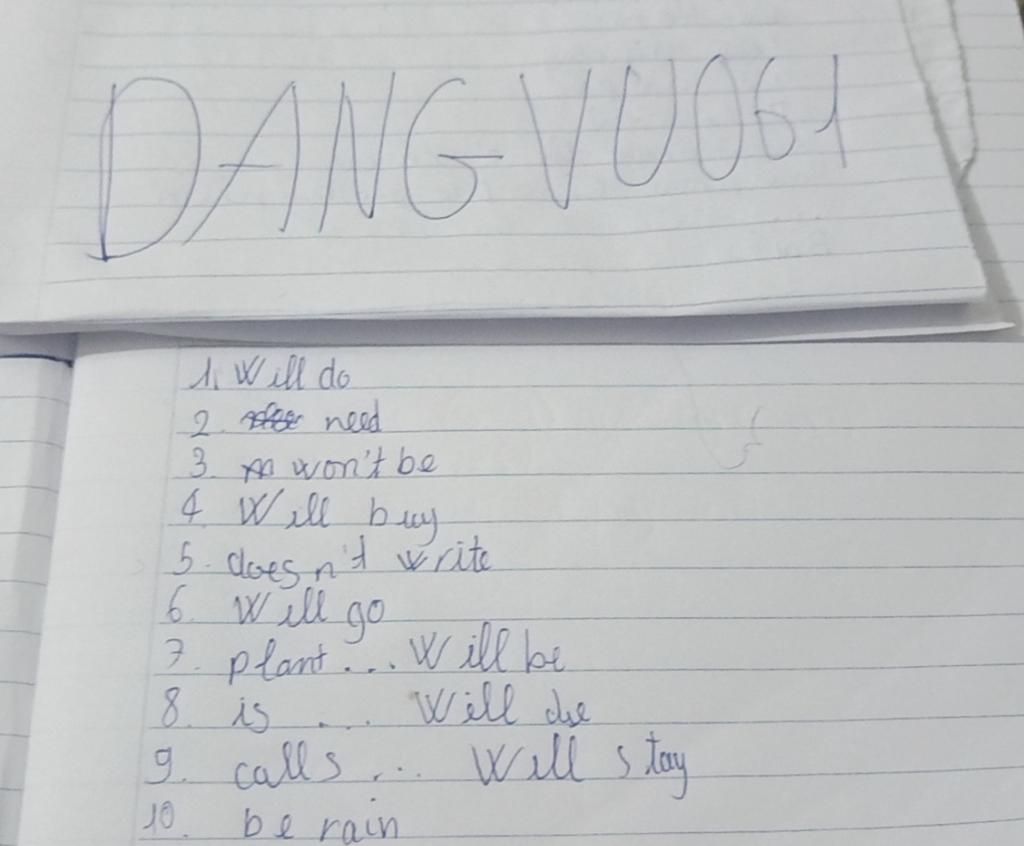 DANGVU061
1. Will do
2. need
3. won't be
4 Will buy
5. doesn't write
6. Will go
7. plant... Will be
8. is ... Will die
9. calls... Will stay
10. be rain